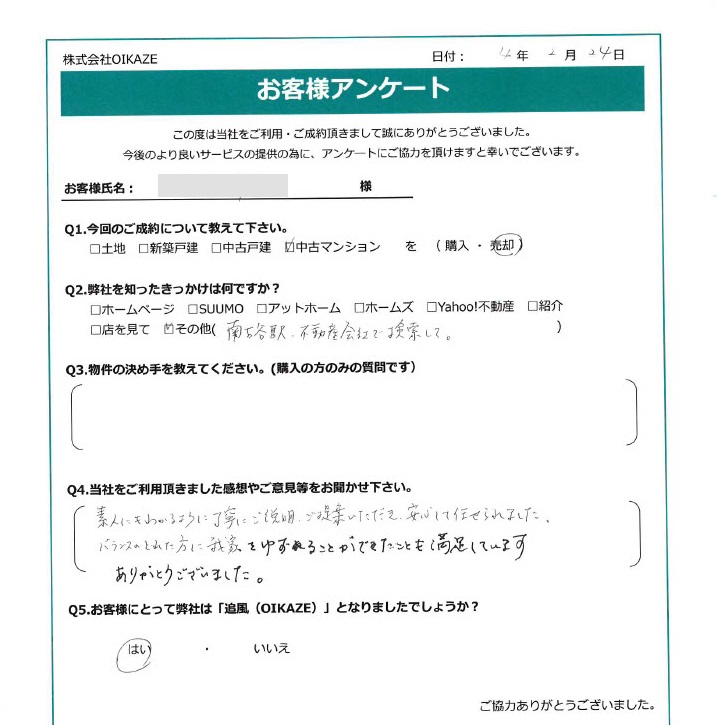 株式会社OIKAZE 日付： 4 年 2 月 24 日
お客様アンケート
この度は当社をご利用・ご成約頂きまして誠にありがとうございました。
今後のより良いサービスの提供の為に、アンケートにご協力を頂けますと幸いでございます。
お客様氏名： 様
Q1.今回のご成約について教えて下さい。
□土地 □新築戸建 □中古戸建 ☑中古マンション を （ 購入 ・ 売却 ）
Q2.弊社を知ったきっかけは何ですか？
□ホームページ □SUUMO □アットホーム □ホームズ □Yahoo!不動産 □紹介
□店を見て ☑その他( 南古谷駅、不動産会社で検索して。 )
Q3.物件の決め手を教えてください。(購入の方のみの質問です）
Q4.当社をご利用頂きました感想やご意見等をお聞かせ下さい。
素人にもわかるように丁寧にご説明、ご提案いただき、安心して任せられました。
バランスのとれた方に我家をゆずることができたことも満足しています
ありがとうございました。
Q5.お客様にとって弊社は「追風（OIKAZE）」となりましたでしょうか？
はい ・ いいえ
ご協力ありがとうございました。